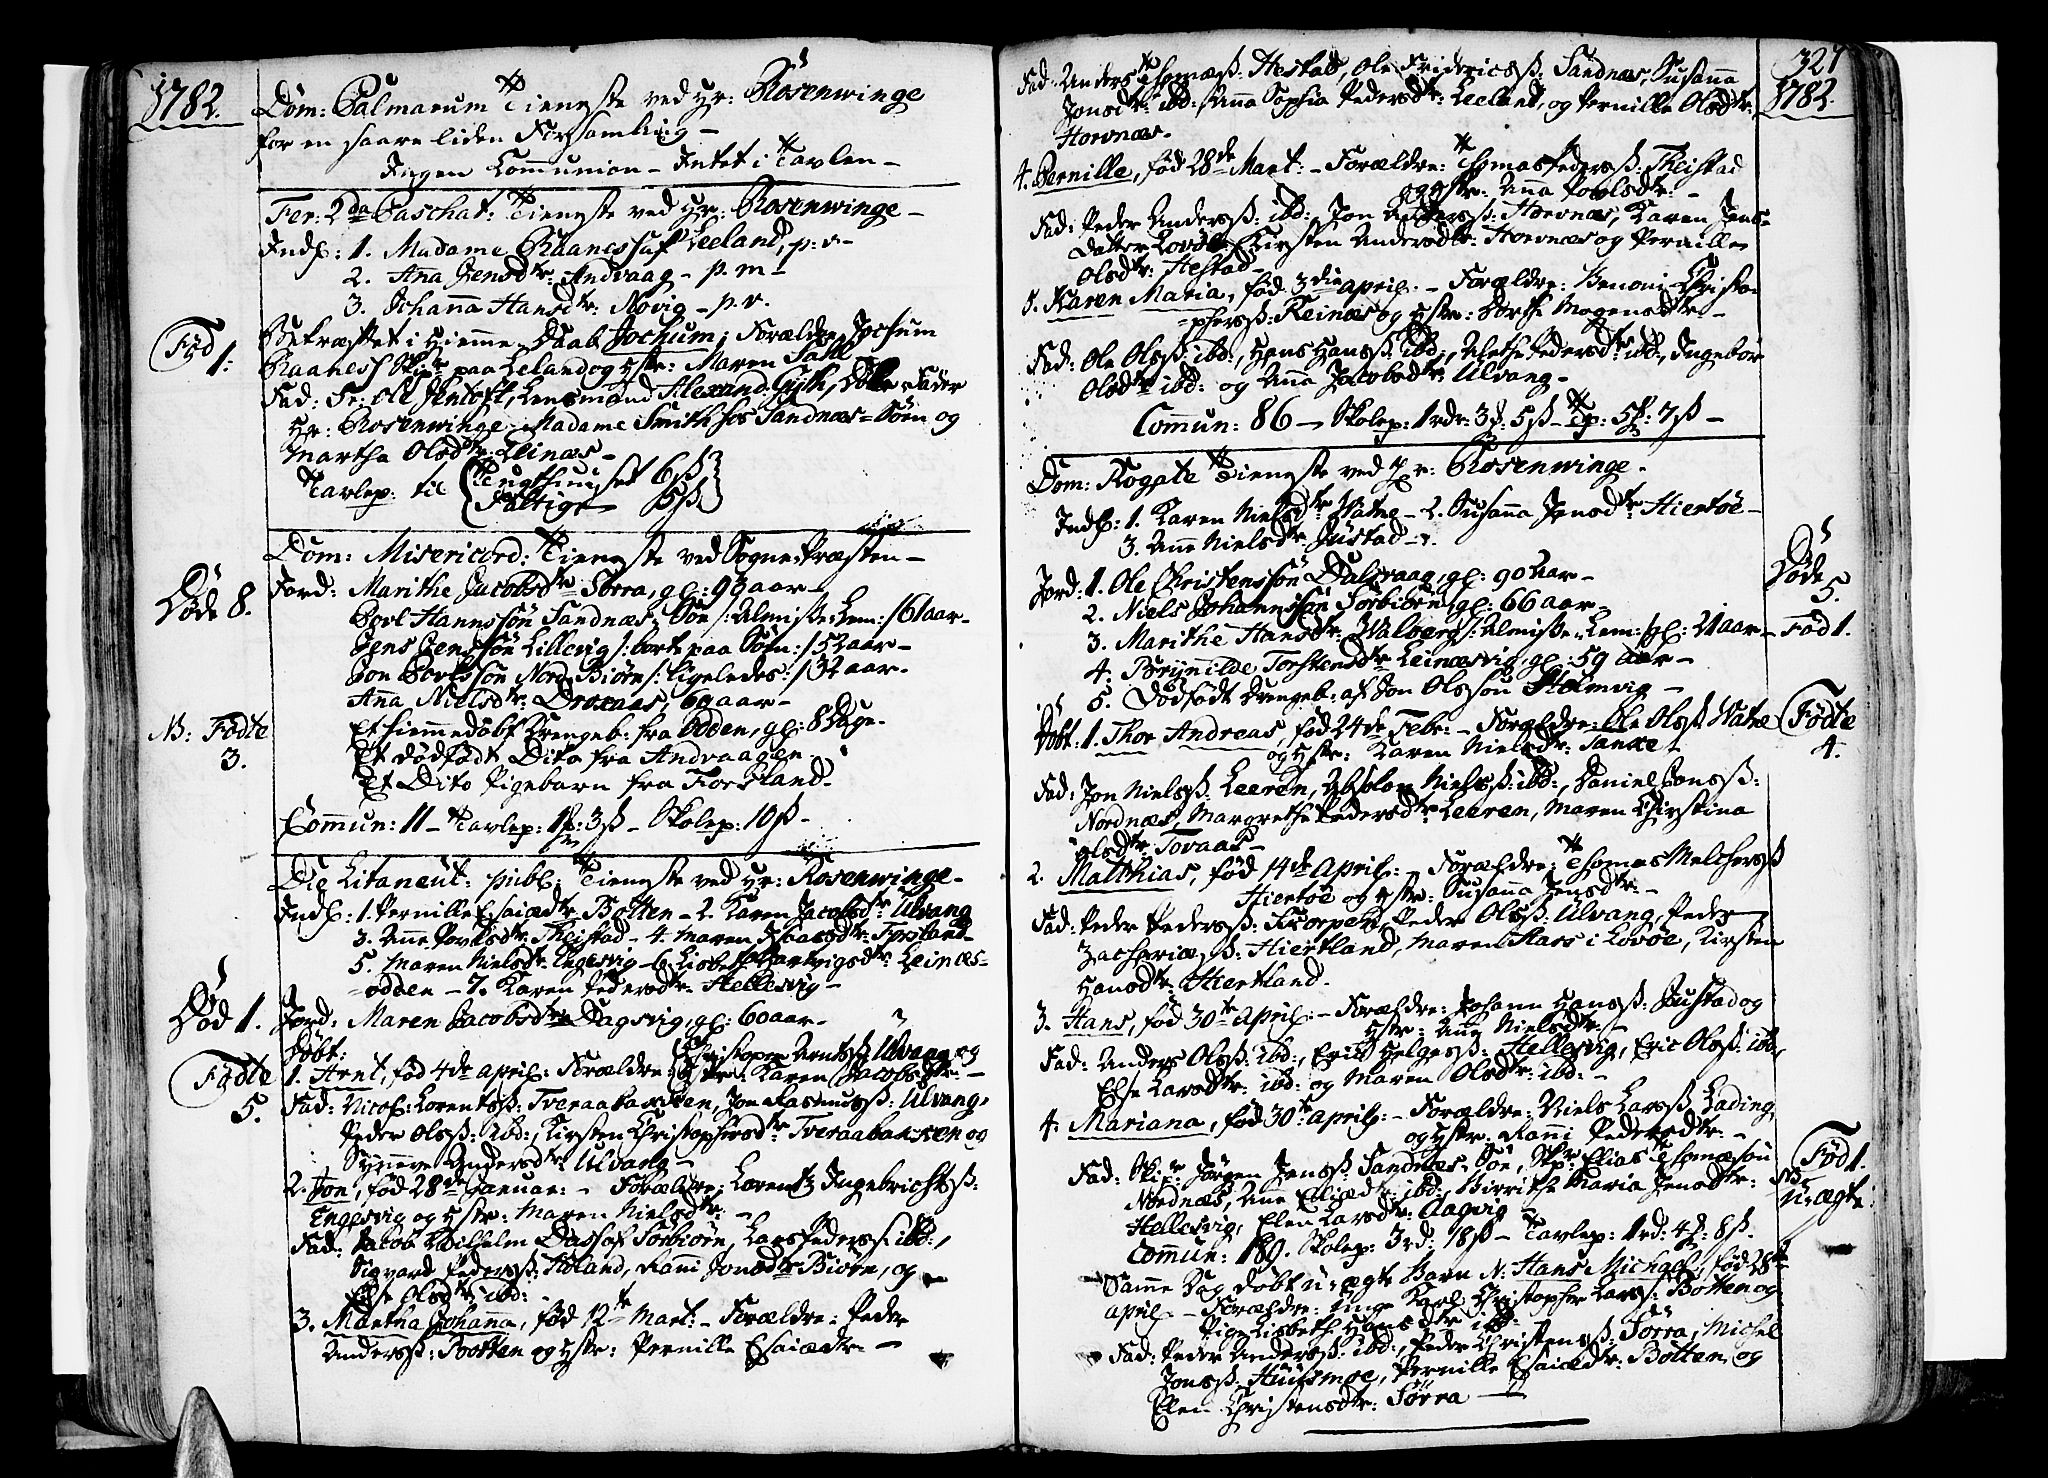 1782.
Dom: Palmarum Tieneste ved Hr: Rosenwinge
for en saare liden Forsamling –
Ingen Communion – Intet i Tavlen –
Fer: 2da Paschat: Tieneste ved Hr: Rosenwinge –
Indl: 1. Madame Raaness af Leeland, p: v–
2. Ana Jensdtr: Andvaag – p. m –
3. Johanna Hansdtr: Novig – p. v.
Fød 1:
Bekræftet i Hiemme-Daab Jochum; Forældre Jochum
Raaness Skipr paa Leland og Hstr: Maren Dahl
Fad: Sr: Ole Jentoft, Lensmand Alexand: Gyth,
Hr: Rosenwinge, Madame Smith hos Sandnæs-Søen og
Martha Olsdtr: Leinæs –
Tavlep: til Tugthuuset 6ß
Fattige 5ß
Dom: Misericord: Tieneste ved Sogne-Præsten –
Døde 8.
Jord: Marithe Jacobsdtr Sørra, gl: 93 aar –
Povl Hanssøn Sandnæs-Søe /: Almisse-Lem: / 61 aar –
Jens Jenssøn Lillevig /: bort paa Søen: / 52 aar –
Jon Povlssøn Nord-Biørn /: ligeledes: / 32 aar –
Anna Nielsdtr: Droxnæs, 69 aar –
NB: Fødte
3.
Et hiemmedøbt Drengeb: fra Odden, gl: 8 Dage –
Et dødfødt Dito fra Andvaagen –
Et Dito Pigebarn fra Forsland.
Commun: 11 – Tavlep: 1f: 3ß – Skolep: 10ß –
Die Litaneut: publ: Tieneste ved Hr: Rosenwinge –
Indl: 1. Pernille Esaiædtr: Botten – 2. Karen Jacobsdtr: Ulvang
3. Ane Povlsdtr: Theistad – 4. Maren Isaacsdtr: Forsland –
5. Maren Nielsdtr: Engesvig – 6. Lisbeth Hartvigsdtr: Leinæs-
=odden – 7. Karen Pedersdtr: Hellesvig –
Død 1.
Jord: Maren Jacobsdtr Dagsvig, gl: 60 aar –
Døbt:
Fødte
5.
1. Arnt, fød 4de April: – Forældre: Christopher Arntsß: Ulvang og
Hstr: Karen Jacobsdtr: –
Fad: Nicol: Lorentsß: Tveraabakken, Jon Rasmusß: Ulvang,
Peder Olsß: ibd:, Kirsten Christophersdtr Tveraabakken og
Synneve Andersdtr: Ulvang –
2. Jon, fød 28de Januar: – Forældre: Lorentz Ingebrichtsß:
Engesvig og Hstr: Maren Nielsdtr: –
Fad: Jacob Wilhelm Dass af Sørbiørn, Lars Pedersß: ibd:,
Sigvard Pedersß: Holand, Ranni Jonsdtr Biørn, og
Else Olsdtr: ibd: –
3. Martha Johanna, fød 12te Mart: – Forældre: Peder
Andersß: Botten og Hstr: Pernille Esaiædtr: –
327
1782.
Fad: Anders Thomæsß: Hestad, Ole Fridericsß: Sandnæs, Susanna
Jonsdtr: ibd: Anna Sophia Pedersdtr: Leeland, og Pernille Olsdtr:
Horvnæs –
4. Pernille, fød 28de Mart: – Forældre: Thomas Pedersß: Theistad
og Hstr: Anna Povlsdtr: –
Fad: Peder Andersß: ibd:, Jon Andersß: Horvnæs, Karen Jens-
datter Lovøe, Kirsten Andersdtr: Horvnæs og Pernille
Olsdtr: Hestad –
5. Karen Maria, fød 3die April: – Forældre: Benoni Christo-
=phersß: Reinæs og Hstr: Dorthe Mogensdtr: –
Fad: Ole Olsß: ibd:, Hans Hansß: ibd:, Alethe Pedersdtr ibd:, Ingebor
Olsdtr ibd: og Anna Jacobsdtr: Ulvang –
Commun: 86 – Skolep: 1rdr: 3f: 5ß – Tp: 5f: 7ß –
Dom: Rogate Tieneste ved Hr: Rosenwinge –
Indl: 1. Karen Nielsdtr Hatne – 2. Susanna Jensdtr Hiertøe –
3. Ane Nielsdtr: Justad –
Døde
5.
Jord: 1. Ole Christenssøn Dalsvaag, gl: 90 Aar –
2. Niels Johannssøn Sørbiørn, gl: 66 aar –
3. Marithe Hansdtr: Walberg /: Almisse-Lem: / gl: 21 aar –
Fød 1.
4. Brynnilde Torstensdtr Leinæsvig, gl: 59 aar –
5. Dødfødt Drengeb: af Jon Olssøn Holmvig –
Fødte
4.
Døbt: 1. Thor Andreas, fød 24de Febr: – Forældre: Ole Olsß: Hatne
og Hstr: Karen Nielsdtr: –
Fad: Jon Nielsß: Leeren, Absolon Nielsß: ibd:, Daniel Jonsß:
Nordnæs, Margrethe Pedersdtr Leeren, Maren Christina
Olsdtr: Tovaas –
2. Matthias, fød 14de April: – Forældre: Thomas Melchersß
Hiertøe og Hstr: Susanna Jensdtr: –
Fad: Peder Pedersß: Skorpen, Peder Olsß: Ulvang, Peder
Zachariæß: Hiertland, Maren Aars i Lovøe, Kirsten
Hansdtr: Hiertland.
3. Hans, fød 30te April: – Forældre: Johann Hansß: Justad og
Hstr: Ane Nielsdtr: –
Fad: Anders Olsß: ibd:, Erich Helgesß: Hellesvig, Eric Olsß: ibd:,
Else Larsdtr: ibd: og Maren Olsdtr: ibd: –
4. Mariana, fød 30te April: – Forældre: Niels Larsß: Lading
og Hstr: Ranni Pedersdtr: –
Fad: Skipr Jørgen Jensß: Sandnæs-Søe, Skpr: Elias Thomæsøn
Nordnæs, Ane Eliædtr: ibd:, Birrithe Maria Jensdtr:
Hellesvig, Elen Larsdtr: Aagvig –
Comun: 189. Skolep: 3rd: 18ß – Tavlep: 1rd: 4f: 8ß.
Fød 1.
NB.
U-ægte:
Samme Dag døbt u-ægte Barn N: Hans Michael, fød 28de
April – Forældre: unge Karl Christopher Larsß: Botten og
Pige Lisbeth Hansdtr ibd: –
Fad: Peder Andersß: ibd:, Peder Christensß: Sørra, Michel
Jonsß: Huusmoe, Pernille Esaiædtr: Botten, og
Elen Christensdtr: Sørra –